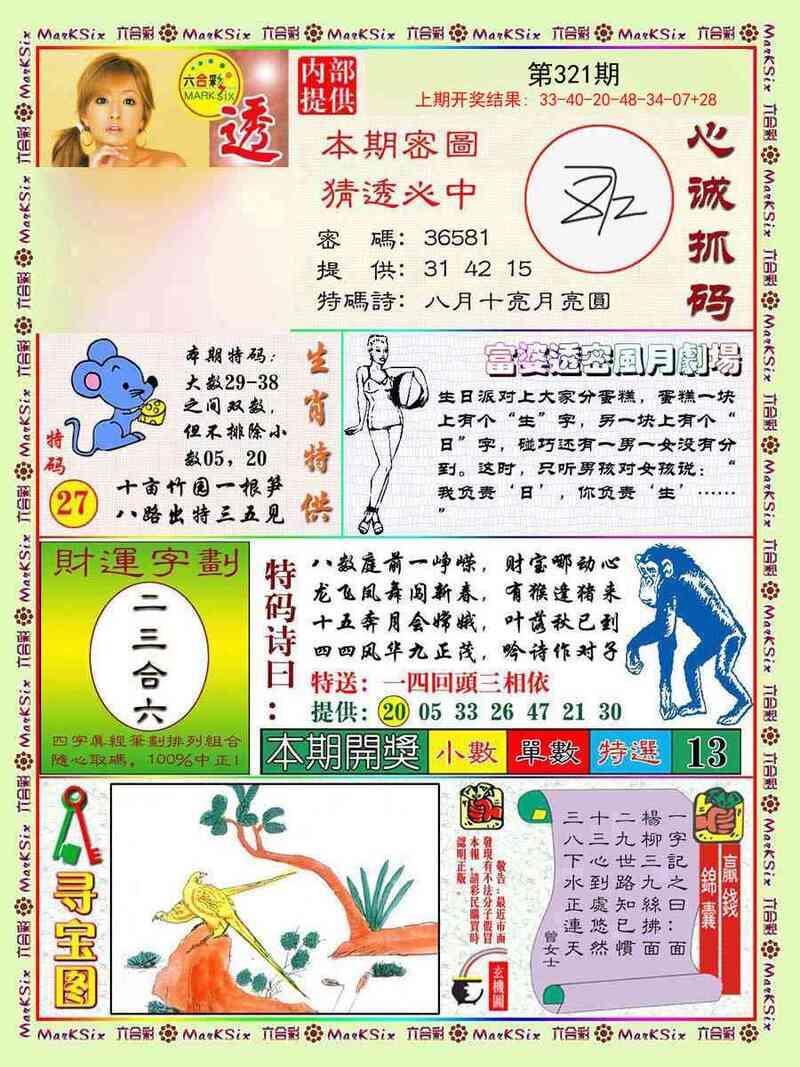 六合彩 MarKSix
六合彩
MARK SIX
透
内部
提供
第321期
上期开奖结果：33-40-20-48-34-07+28
本期密圖
猜透必中
密 碼：36581
提 供：31 42 15
特碼詩：八月十亮月亮圓
心诚抓码
本期特码：
大数29-38
之间双数，
但不排除小
数05，20
特码
27
十亩竹园一根笋
八路出特三五见
生肖特供
富婆透密風月劇場
生日派对上大家分蛋糕，蛋糕一块
上有个“生”字，另一块上有个“
日”字，碰巧还有一男一女没有分
到。这时，只听男孩对女孩说：“
我负责‘日’，你负责‘生’……
”
財運字劃
二三合六
四字真經筆劃排列組合
隨心取碼，100%中正！
特码诗曰：
八数庭前一峥嵘，财宝哪动心
龙飞凤舞闯新春，有猴逢猪来
十五奔月会嫦娥，叶落秋已到
四四风华九正茂，吟诗作对子
特送：一四回頭三相依
提供：20 05 33 26 47 21 30
本期開獎 小數 單數 特選 13
寻宝图
敬告：最近市面
發現有不法分子假冒
本報，請彩民購買時
認明正版。
玄機圖
一字記之曰：面
楊柳三九絲拂面
二九世路知已慣
十三心到處悠然
三八下水正連天
曾女士
贏錢
錦囊